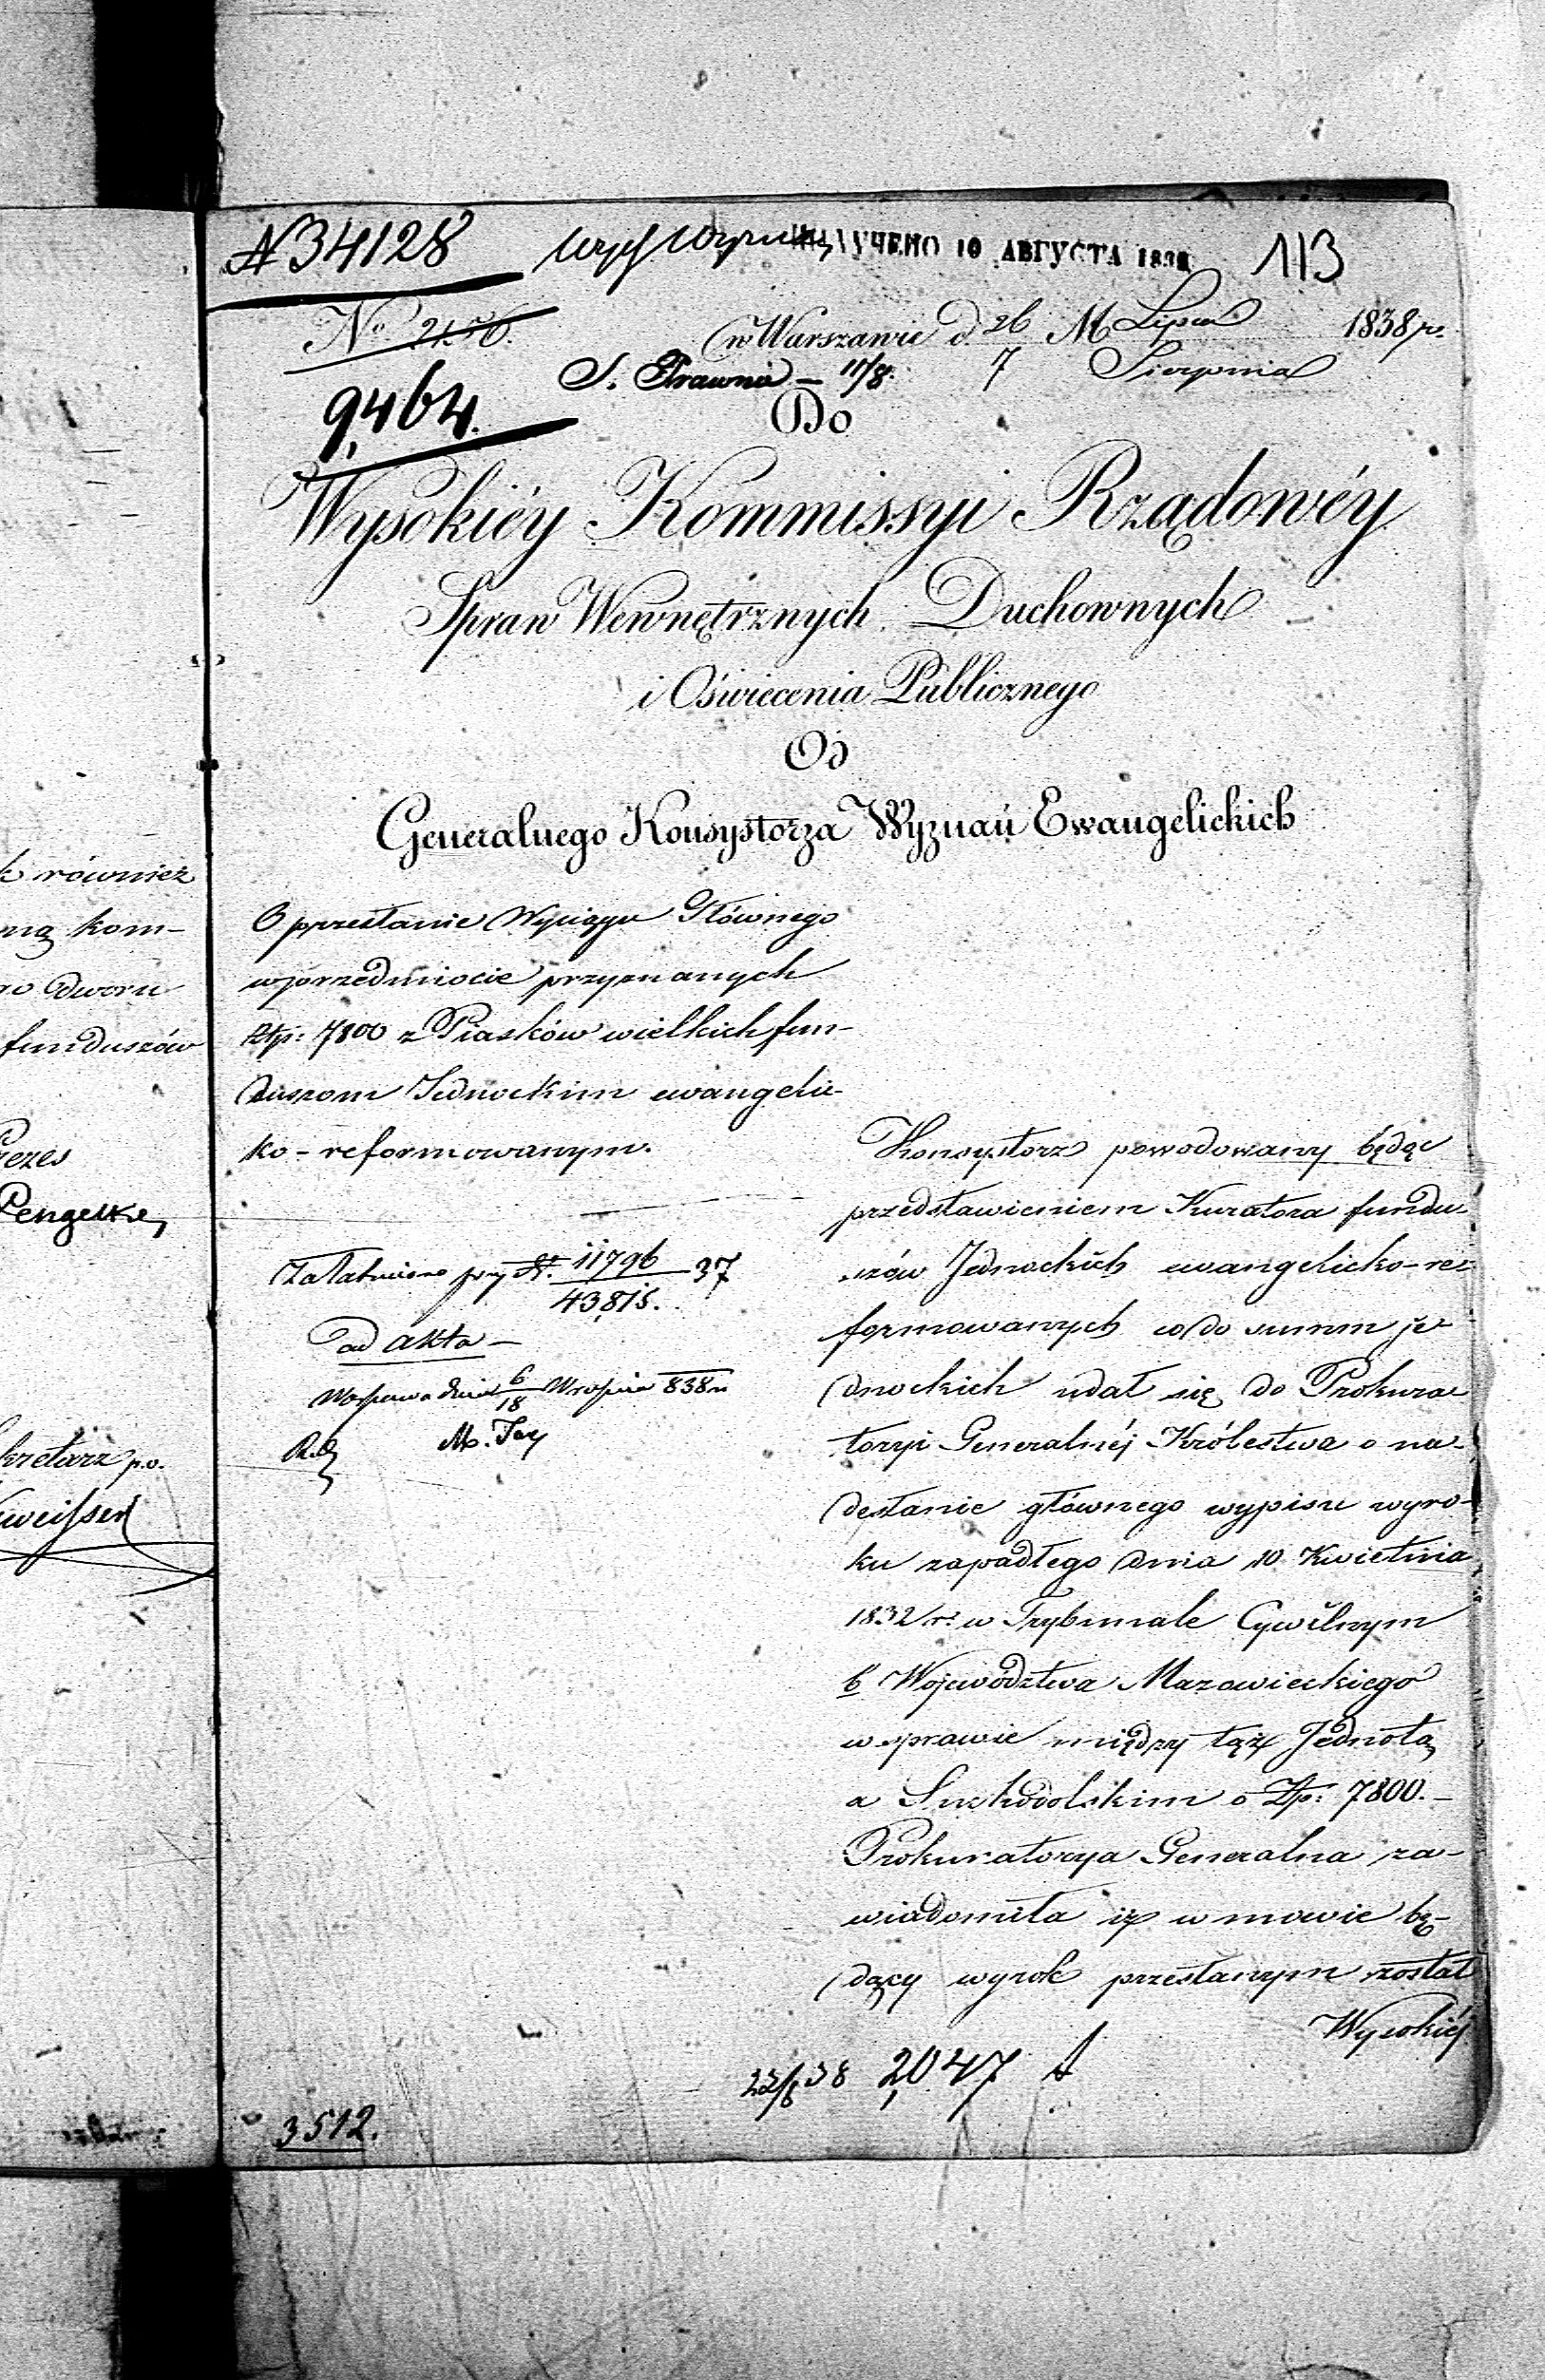 k również
ną kom-
ro dworu
funduszów
Prezes
Pengelke
kretarz p.o.
N 34128
ПОЛУЧЕНО 10 АВГУСТА 1838
113
No 2156.
w Warszawie d. 26 M Lipca 1838 r.
7 Sierpnia
S. Prawna — 11/8.
9,464.
Do
Wysokiéy Kommissyi Rządowéy
Spraw Wewnętrznych Duchownych
i Oświecenia Publicznego
Od
Generalnego Konsystorza Wyznań Ewangelickich
O przesłanie Wyciągu Głównego
w przedmiocie przyznanych
Złp: 7800 z Piasków wielkich fun-
duszom Jednockim ewangelic-
ko-reformowanym.
Załatwiono przy N. 11796/43,815. 37
ad akta —
Warszawa dnia 6/18 Września 838 r.
Konsystorz powodowany będąc
przedstawieniem Kuratora fundu-
szów Jednockich ewangelicko-re-
formowanych co do summ je-
dnockich udał się do Prokura-
toryi Generalnéj Królestwa o na-
desłanie głównego wypisu wyro-
ku zapadłego dnia 10 Kwietnia
1832 r. w Trybunale Cywilnym
b. Województwa Mazowieckiego
w sprawie między tąż Jednotą
a Suchodolskim o Złp: 7800. —
Prokuratorya Generalna za-
wiadomiła iż w mowie bę-
dący wyrok przesłanym został
Wysokiéj
2,047
3512.